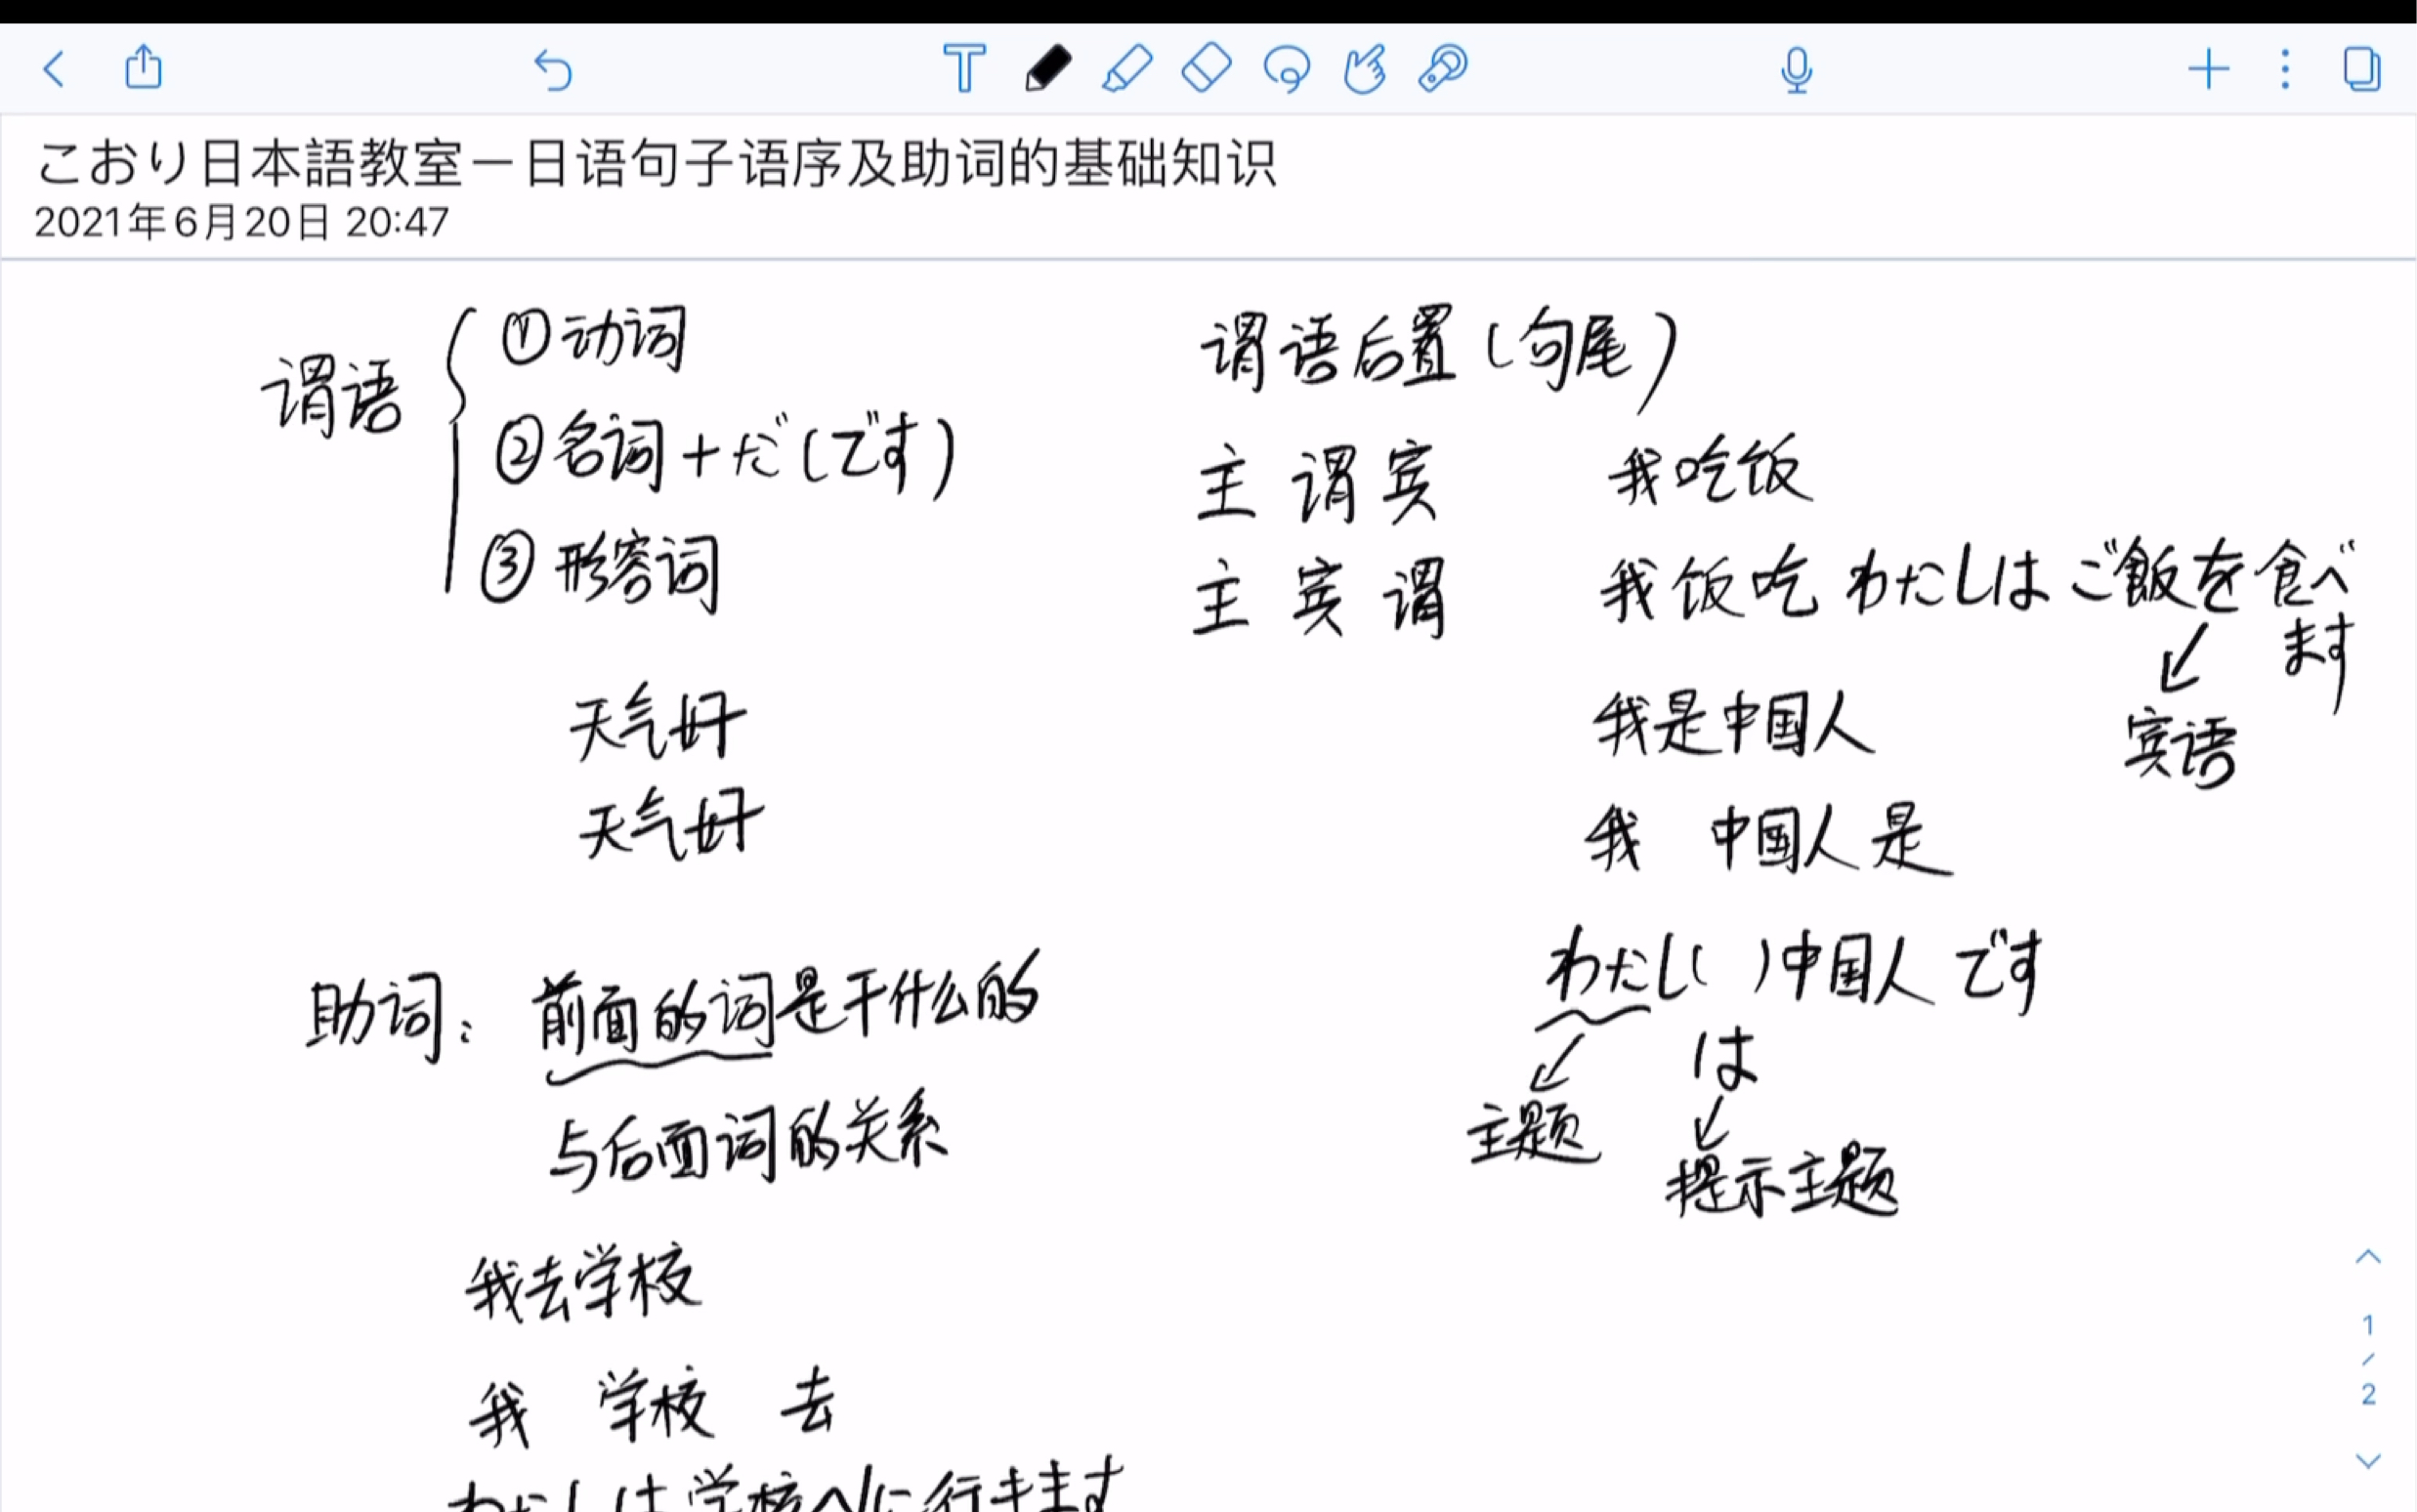 こおり日本語教室－日语句子语序及助词的基础知识
2021年6月20日 20:47
谓语
①动词
②名词+だ(です)
③形容词
天气好
天气好
助词：前面的词是干什么的
与后面词的关系
我去学校
我 学校 去
わたしは学校へ/に行きます
谓语后置(句尾)
主 谓 宾 我吃饭
主 宾 谓 我饭吃 わたしはご飯を食べ
ます
宾语
我是中国人
我 中国人是
わたし( )中国人です
は
主题
提示主题
1
/
2